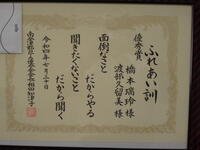 ふれあい訓
優秀賞
橋本瑞玲様
渡部久留美様
面倒なこと
だからやる
聞きたくないこと
だから聞く
令和四年七月二十日